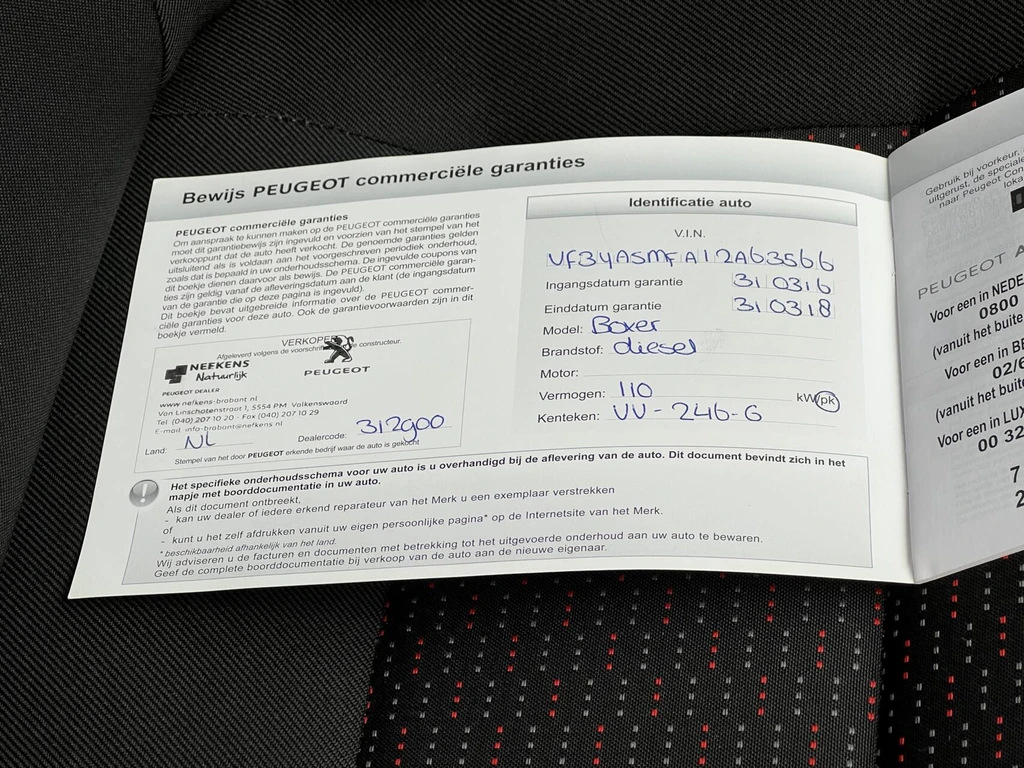 Bewijs PEUGEOT commerciële garanties
PEUGEOT commerciële garanties
Om aanspraak te kunnen maken op de PEUGEOT commerciële garanties
moet dit garantiebewijs zijn ingevuld en voorzien van het stempel van het
verkooppunt dat de auto heeft verkocht. De genoemde garanties gelden
uitsluitend als is voldaan aan het voorgeschreven periodiek onderhoud,
zoals dat is bepaald in uw onderhoudsschema. De ingevulde coupons van
dit boekje dienen daarvoor als bewijs. De PEUGEOT commerciële garan-
ties zijn geldig vanaf de afleveringsdatum aan de klant (de ingangsdatum
van de garantie die op deze pagina is ingevuld).
Dit boekje bevat uitgebreide informatie over de PEUGEOT commer-
ciële garanties voor deze auto. Ook de garantievoorwaarden zijn in dit
boekje vermeld.
VERKOPER
Afgeleverd volgens de voorschriften constructeur.
NEFKENS
Natuurlijk
PEUGEOT
PEUGEOT DEALER
www.nefkens-brabant.nl
Van Linschotenstraat 1, 5554 PM Valkenswaard
Tel. (040) 207 10 20 - Fax (040) 207 10 29
E-mail info-brabant@nefkens.nl
Land: NL Dealercode: 312900
Stempel van het door PEUGEOT erkende bedrijf waar de auto is gekocht
Identificatie auto
V.I.N.
VF3YASMFA12A63566
Ingangsdatum garantie 31 03 16
Einddatum garantie 31 03 18
Model: Boxer
Brandstof: diesel
Motor:
Vermogen: 110 kW/pk
Kenteken: VV-246-G
! Het specifieke onderhoudsschema voor uw auto is u overhandigd bij de aflevering van de auto. Dit document bevindt zich in het
mapje met boorddocumentatie in uw auto.
Als dit document ontbreekt,
- kan uw dealer of iedere erkend reparateur van het Merk u een exemplaar verstrekken
of
- kunt u het zelf afdrukken vanuit uw eigen persoonlijke pagina* op de Internetsite van het Merk.
* beschikbaarheid afhankelijk van het land.
Wij adviseren u de facturen en documenten met betrekking tot het uitgevoerde onderhoud aan uw auto te bewaren.
Geef de complete boorddocumentatie bij verkoop van de auto aan de nieuwe eigenaar.
Gebruik bij voorkeur
uitgerust, de speciale
naar Peugeot Con
loka
PEUGEOT A
Voor een in NEDE
0800
(vanuit het buite
Voor een in BE
02/6
(vanuit het buit
Voor een in LUX
00 32
7
2